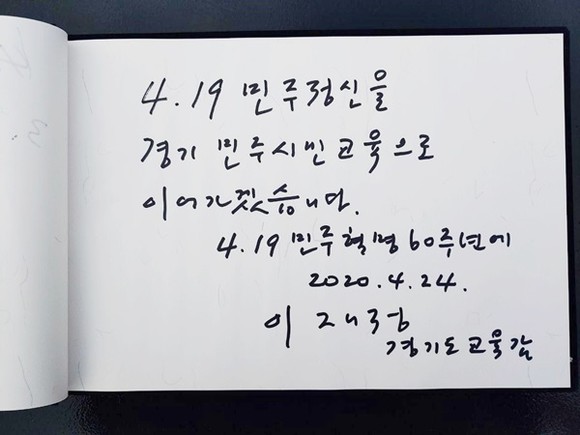 4.19 민주정신을
경기 민주시민교육으로
이어가겟습니다.
4.19 민주혁명 60주년에
2020.4.24.
이재정
경기도교육감